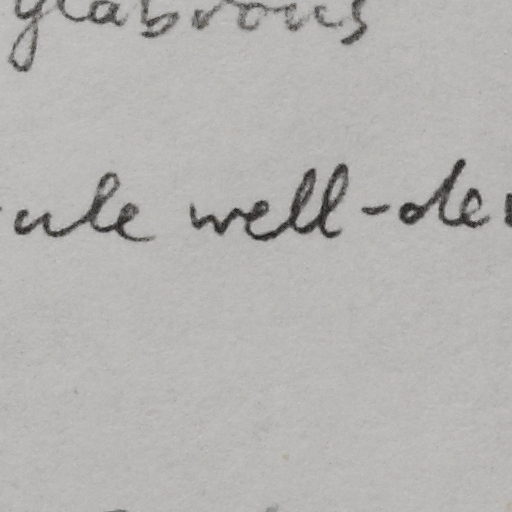 glabrous
ule well-dev